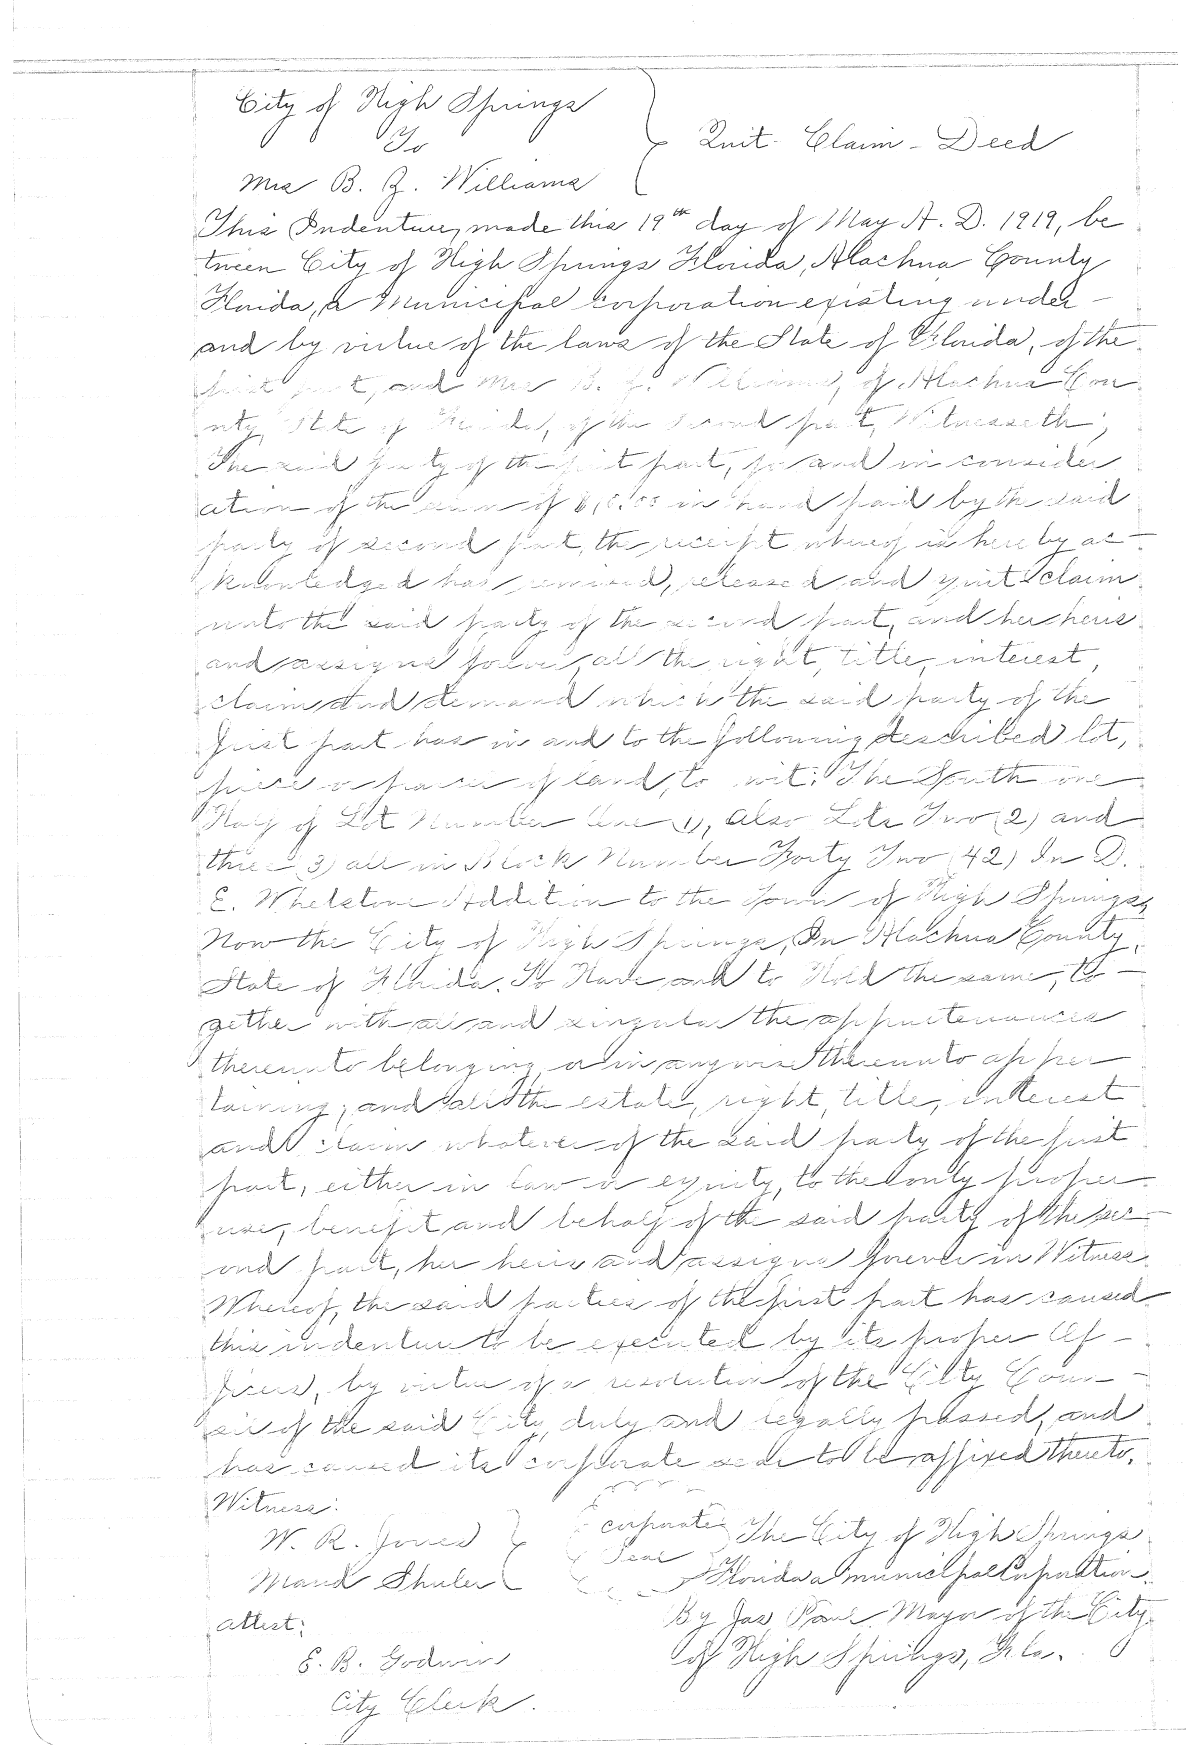 City of High Springs
To
Mrs B. Z. Williams
Quit- Claim - Deed
This Indenture, made this 19th day of May A. D. 1919, be
tween City of High Springs Florida, Alachua County
Florida, a Municipal corporation existing under
and by virtue of the laws of the State of Florida, of the
first part, and Mrs B. Z. Williams, of Alachua Cou
nty, State of Florida, of the second part, Witnesseth;
The said party of the first part, for and in consider
ation of the sum of in hand paid by the said
party of second part, the receipt whereof is here by ac-
knowledged has remised, released and quit claim
unto the said party of the second part, and her heirs
and assigns forever, all the right, title, interest,
claim and demand which the said party of the
first part has in and to the following described lot,
piece or parcel of land, to wit: The South one
Half of Lot Number One (1), also Lots Two (2) and
three (3) all in Block Number Forty Two (42) In D.
E. Whetstone Addition to the Town of High Springs,
Now the City of High Springs, In Alachua County,
State of Florida. To Have and to Hold the same, to-
gether with all and singular the appurtenances
thereunto belonging or in anywise thereunto apper
taining; and all the estate, right, title, interest
and claim whatever of the said party of the first
part, either in law or equity, to the only proper
use, benefit and behalf of the said party of the sec-
ond part, her heirs and assigns forever in Witness
Whereof, the said parties of the first part has caused
this indenture to be executed by its proper Of-
ficers, by virtue of a resolution of the City Coun-
cil of the said City, duly and legally passed, and
has caused its corporate seal to be affixed thereto.
Witness:
W. R. Jones
Maud Shuler
corporate
Seal
The City of High Springs
Florida a municipal Corporation.
By Jas Paul Mayor of the City
of High Springs, Fla.
Attest:
E. B. Godwin
City Clerk.